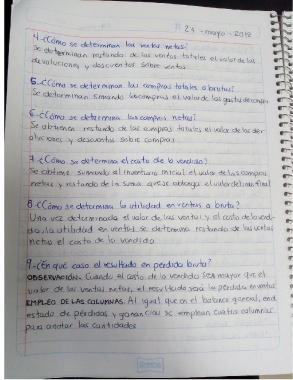 24 - mayo - 2018
4-¿Cómo se determinan las ventas netas?
Se determinan restando de las ventas totales el valor de las
devoluciones y descuentos sobre ventas
5-¿Cómo se determinan las compras totales o brutas?
Se determinan sumando las compras el valor de los gastos de compra
6-¿Cómo se determina las compras netas?
Se obtienen restando de las compras totales el valor de las dev-
oluciones y descuentos sobre compras
7-¿Cómo se determina el costo de lo vendido?
Se obtiene sumando al inventario inicial el valor de las compras
netas y restando de la suma que se obtenga el valor del inv. final
8-¿Cómo se determina la utilidad en ventas o bruta?
Una vez determinado el valor de las ventas y el costo de lo vendi-
do, la utilidad en ventas se determina restando de las ventas
netas el costo de lo vendido
9-¿En qué caso el resultado en perdida bruta?
OBSERVACIÓN. Cuando el costo de lo vendido sea mayor que el
valor de las ventas netas, el resultado será la perdida en ventas
EMPLEO DE LAS COLUMNAS. Al igual que en el balance general, en el
estado de pérdidas y ganancias se emplean cuatro columnas
para anotar las cantidades